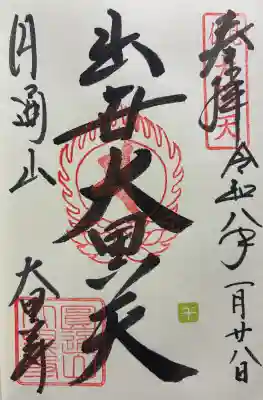 奉拝
令和八年一月廿八日
出世大黒天
円通山
大黒寺